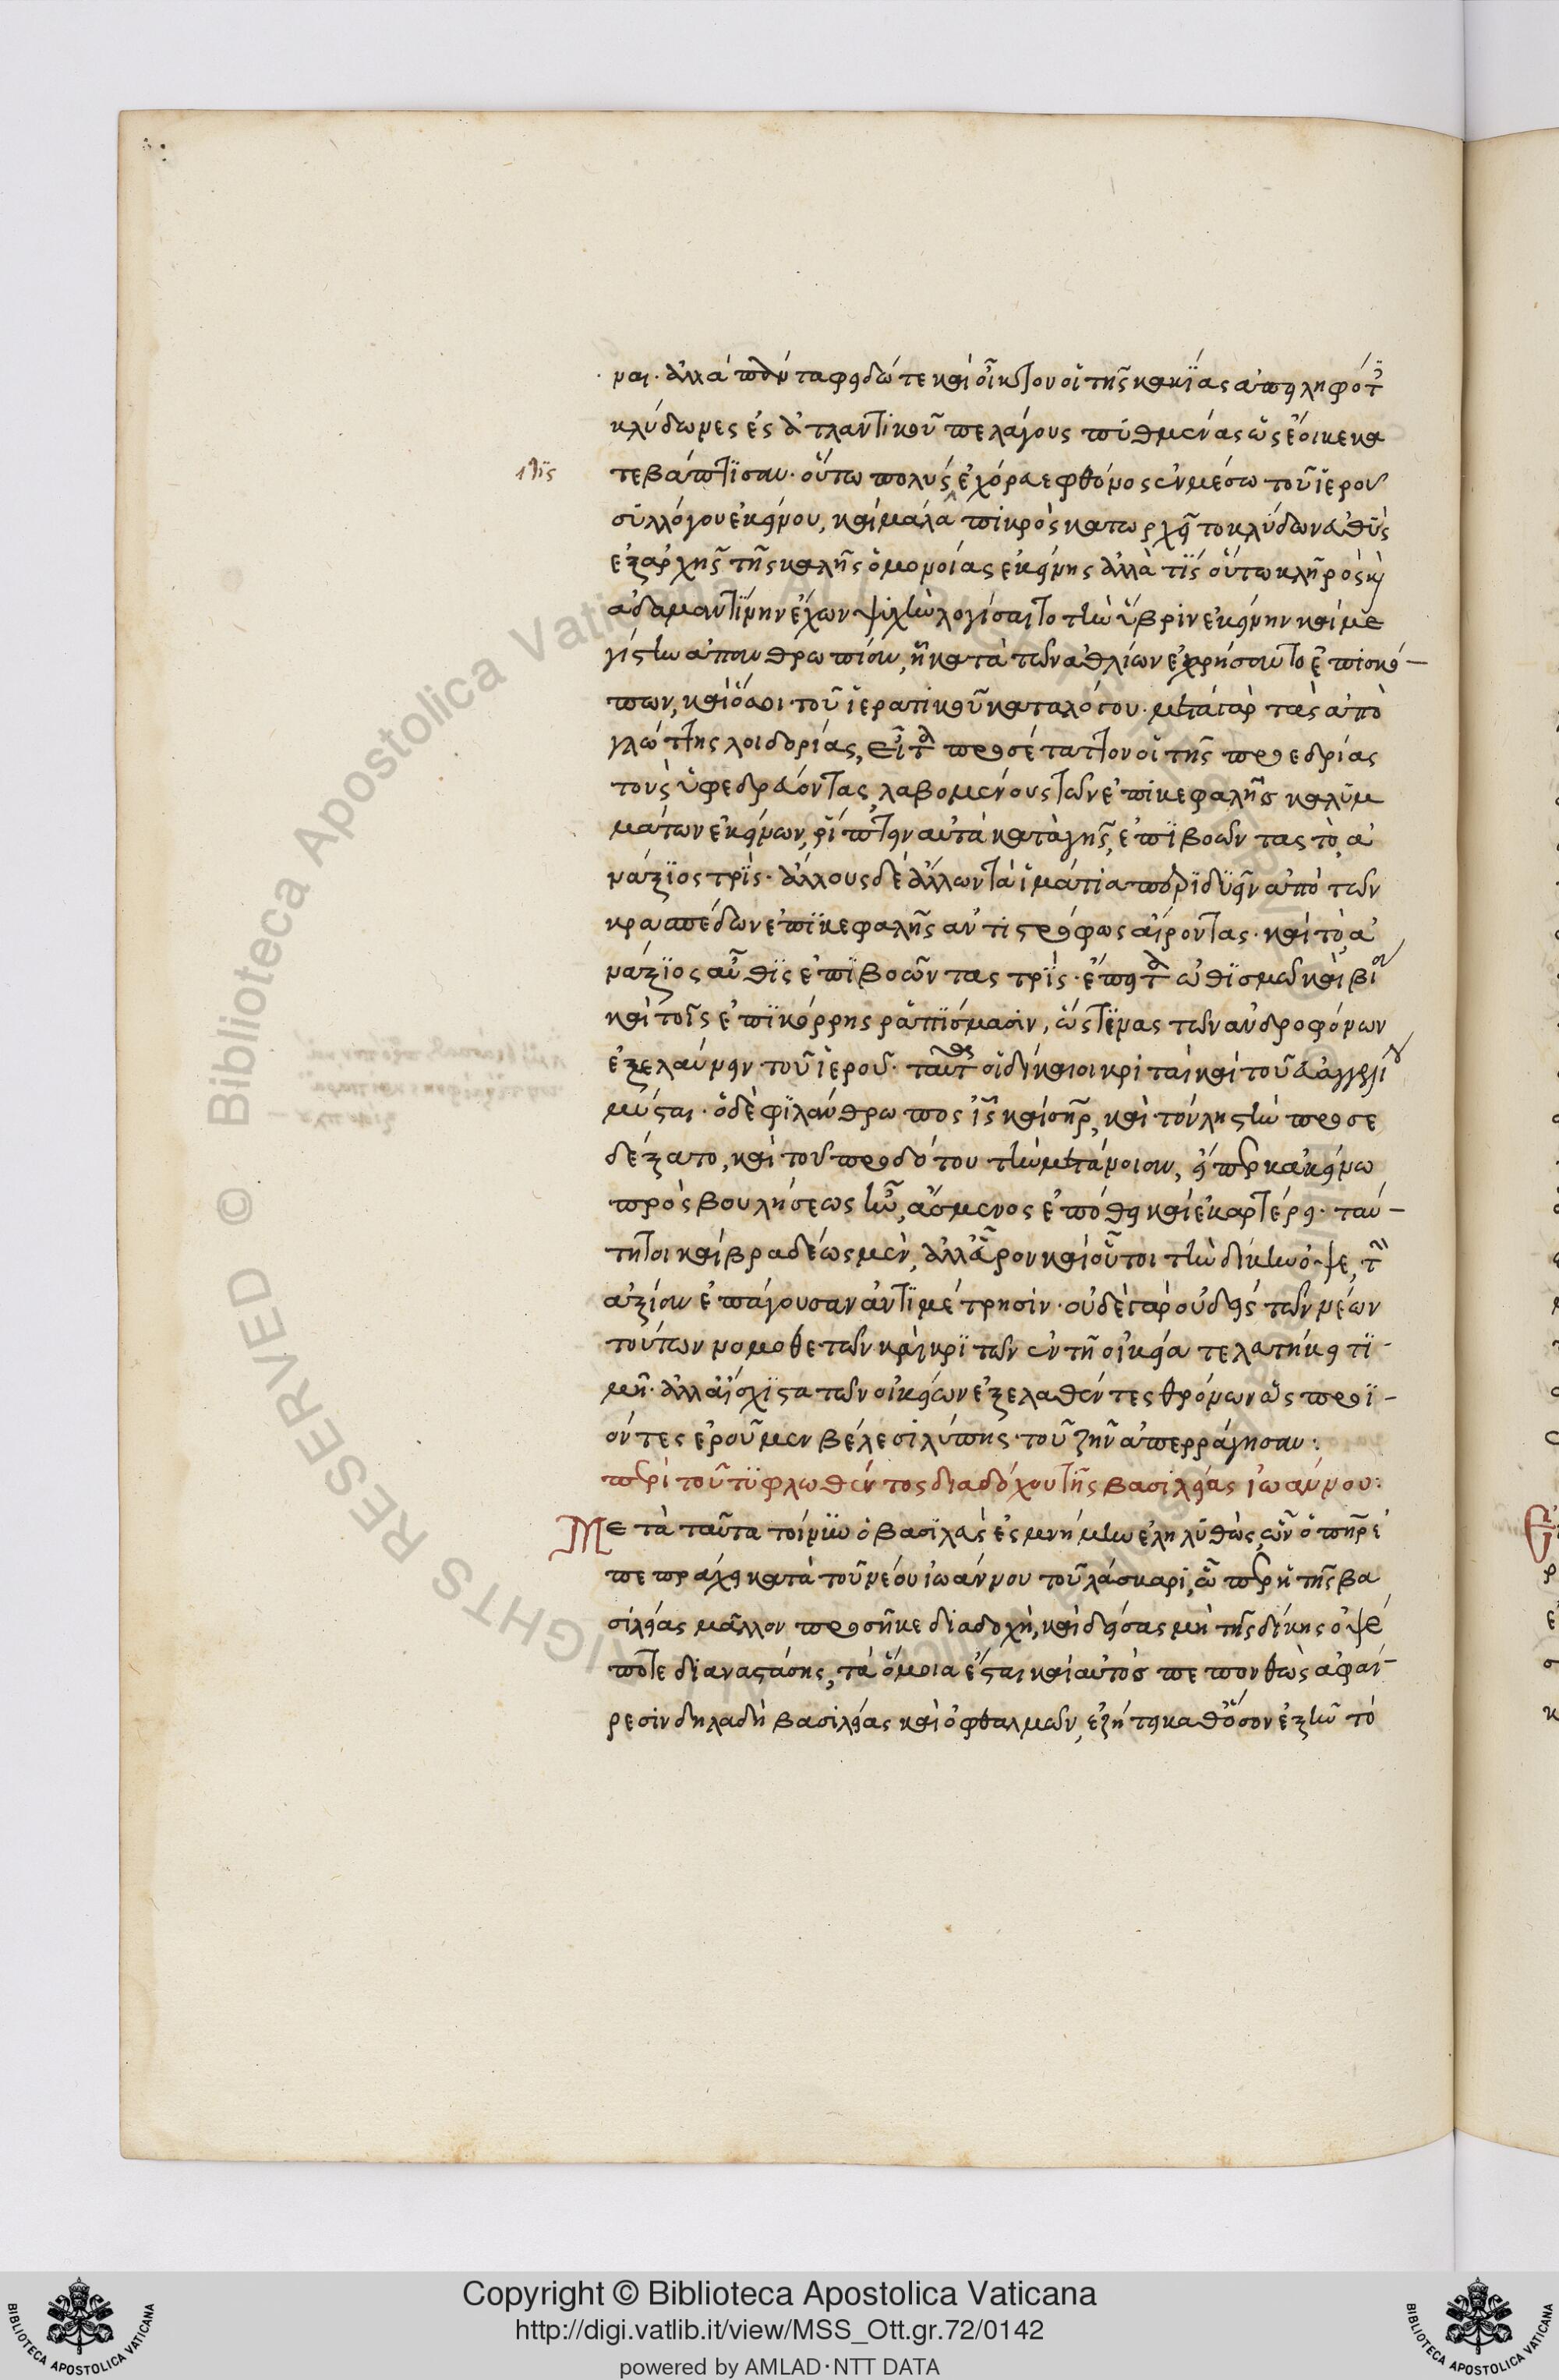 ναι. ἀλλὰ πάντα φειδώ τε καὶ οἶκτον οἱ τῆς κακίας ἀπειληφότες
κλύδωνες ἐς ἀτλαντικοῦ πελάγους πυθμένας ὡς ἔοικε κα
τεβάπτισαν. οὕτω πολὺς ἐχόρευε φθόνος ἐν μέσω τοῦ ἱεροῦ
συλλόγου ἐκείνου, καὶ μάλα πικρὸς κατωρχεῖτο κλύδων εὐθὺς
ἐξαρχῆς τῆς καλῆς ὁμονοίας ἐκείνης ἀλλὰ τίς οὕτω κληρὸς καὶ
ἀδαμαντίνην ἔχων ψυχὴν λογίσαιτο τὴν ὕβριν ἐκείνην καὶ με
γίστην ἀπανθρωπίαν, ἣ κατὰ τῶν ἀθλίων ἐχρήσαντο ἐπισκό
πων, καὶ ὅσοι τοῦ ἱερατικοῦ καταλόγου. μετὰ γὰρ τὰς ἀπὸ
γλώττης λοιδορίας, εἶτα προσέταττον οἱ τῆς προεδρίας
τοὺς ὑφεδρεύοντας λαβομένους τῶν ἐπὶ κεφαλῆς καλυμ
μάτων ἐκείνων, ῥίπτειν αὐτὰ κατὰ γῆς, ἐπιβοῶντας τὸ, ἀ
νάξιος τρίς. ἄλλους δὲ ἄλλων τὰ ἱμάτια περιδύειν ἀπὸ τῶν
κρασπέδων ἐπὶ κεφαλῆς ἀντιστρόφως αἴροντας. καὶ τὸ, ἀ
νάξιος αὖθις ἐπιβοῶντας τρίς. ἔπειτα ὠθισμῶν καὶ βίαν
καὶ τοῖς ἐπὶ κόρρης ῥαπίσμασιν, ὥς τινας τῶν ἀνδροφόνων
ἐξελαύνειν τοῦ ἱεροῦ. ταῦτα οἱ δίκαιοι κριταὶ καὶ τοῦ εὐαγγελίου
μύσται. ὁ δὲ φιλάνθρωπος ἰς καὶ σηρ, καὶ τὸν ληστὴν προσε
δέξατο, καὶ τοῦ προδότου τὴν μετάνοιαν, εἴπερ κἀκείνω
πρὸς βουλήσεως ἦν, ἄσμενος ἐπόθει καὶ ἐκαρτέρει. ταύ
τητοι καὶ βραδέως μὲν, ἀλλ' εὗρον καὶ οὗτοι τὴν δίκην ὀψε, τὴν
ἀξίαν ἐπάγουσαν ἀντιμέτρησιν. οὐδὲ γὰρ οὐδεὶς τῶν νέων
τούτων νομοθετῶν καὶ κριτῶν ἐν τῆ οἰκεία τελευτήκει τι
μῆ. ἀλλ' αἴσχιστα τῶν οἰκείων ἐξελαθέντες θρόνων ὡς προϊ
όντες ἐροῦμεν βέλεσι λύπης τοῦ ζῆν ἀπερράγησαν:
περὶ τοῦ τυφλωθέντος διαδόχου τῆς βασιλείας ἰωάννου:
Μετὰ ταῦτα τοίνυν ὁ βασιλεὺς ἐς μνήμην ἐληλυθὼς, ὧν ὁ πηρε
πεπράχει κατὰ τοῦ νέου ἰωάννου τοῦ λάσκαρι, ὧ περ ἡ τῆς βα
σιλείας μᾶλλον προσῆκε διαδοχὴ, καὶ δείσας μὴ τῆς δίκης ὀψέ
ποτε διαναστάσης, τὰ ὅμοια ἔσται καὶ αὐτὸς πεπονθὼς ἀφαί
ρεσιν δηλαδὴ βασιλείας καὶ ὀφθαλμῶν, ἐζήτει καθόσον ἐξῆν τὸ
Copyright © Biblioteca Apostolica Vaticana
http://digi.vatlib.it/view/MSS_Ott.gr.72/0142
powered by AMLAD·NTT DATA